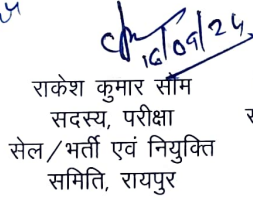 16/09/24
राकेश कुमार सोम
सदस्य, परीक्षा
सेल/भर्ती एवं नियुक्ति
समिति, रायपुर